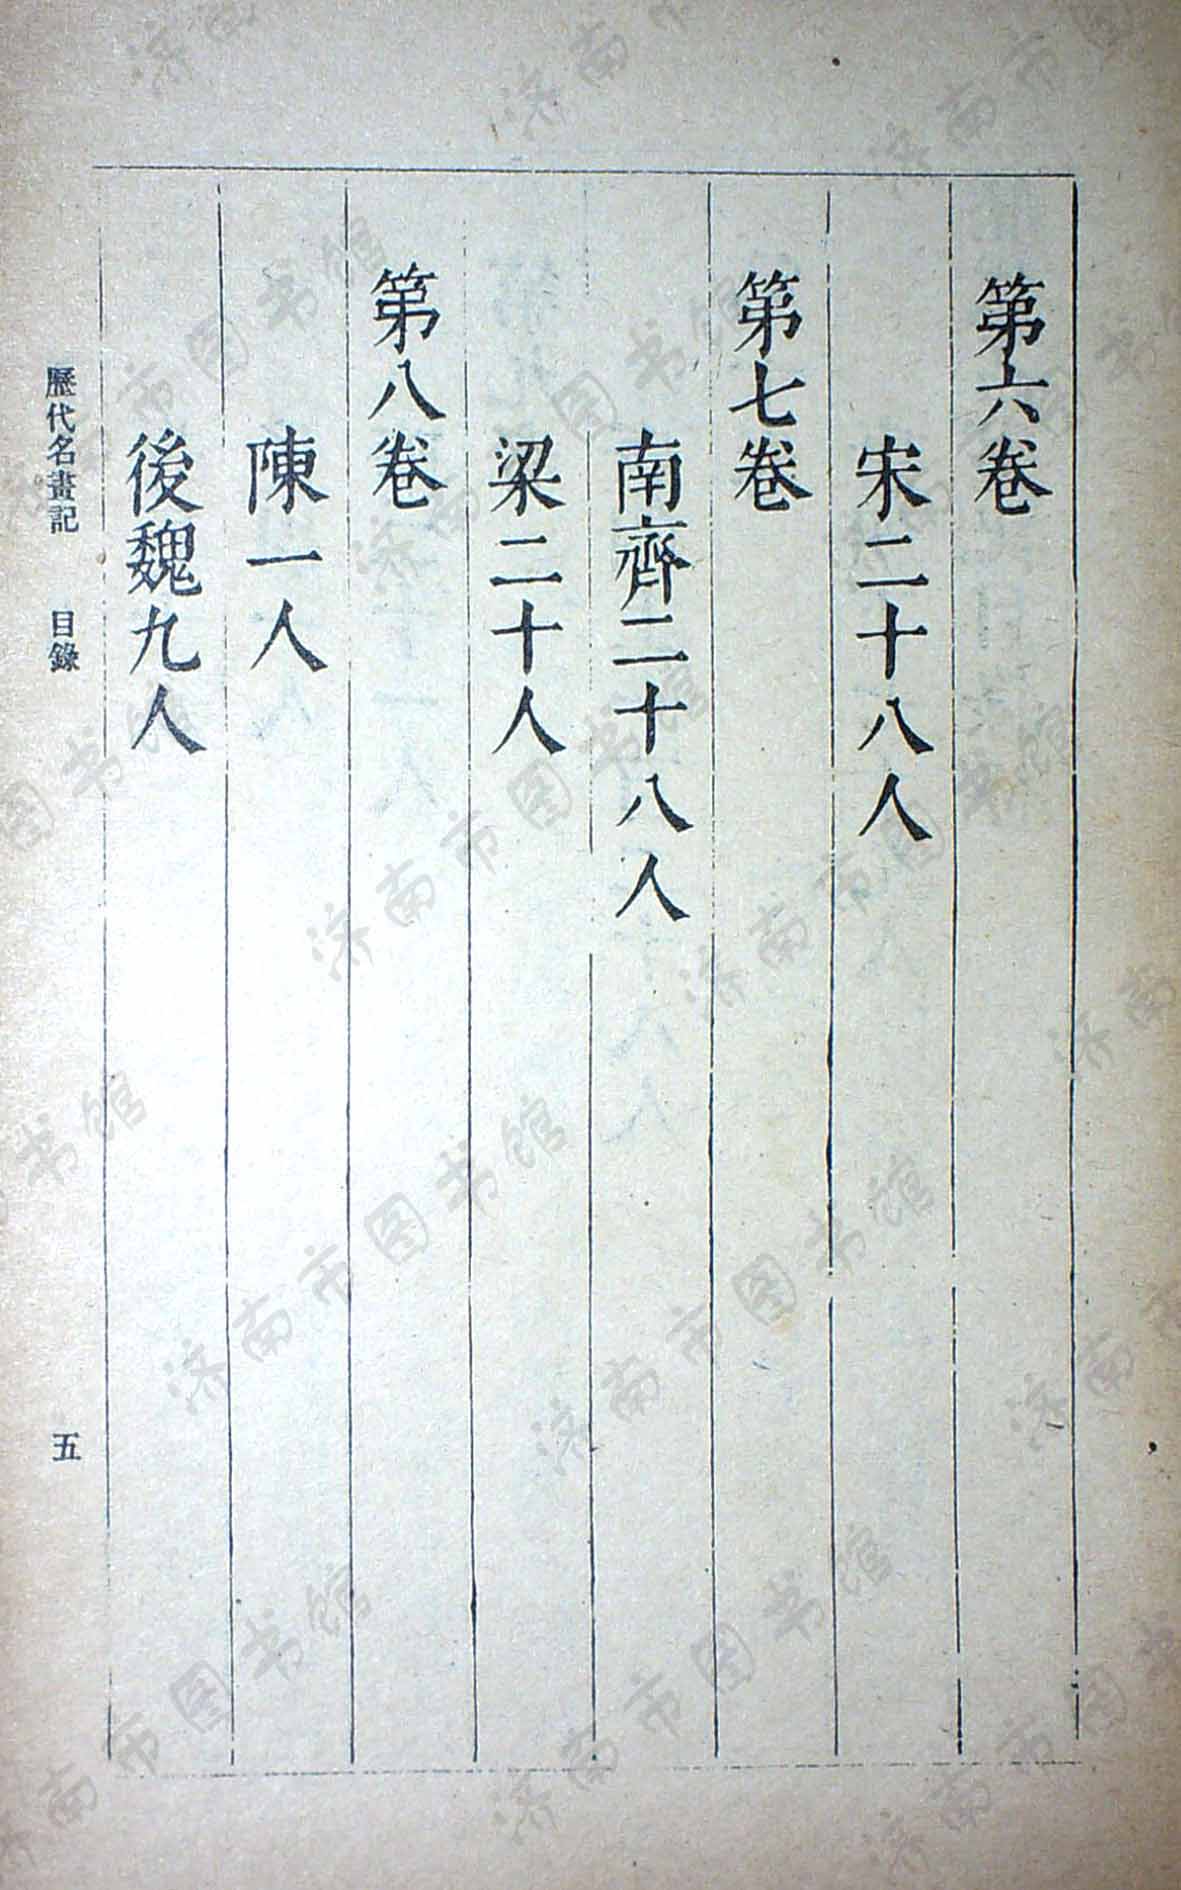 第六卷
宋二十八人
第七卷
南齊二十八人
梁二十人
第八卷
陳一人
後魏九人
歷代名畫記 目錄 五
济南市图书馆